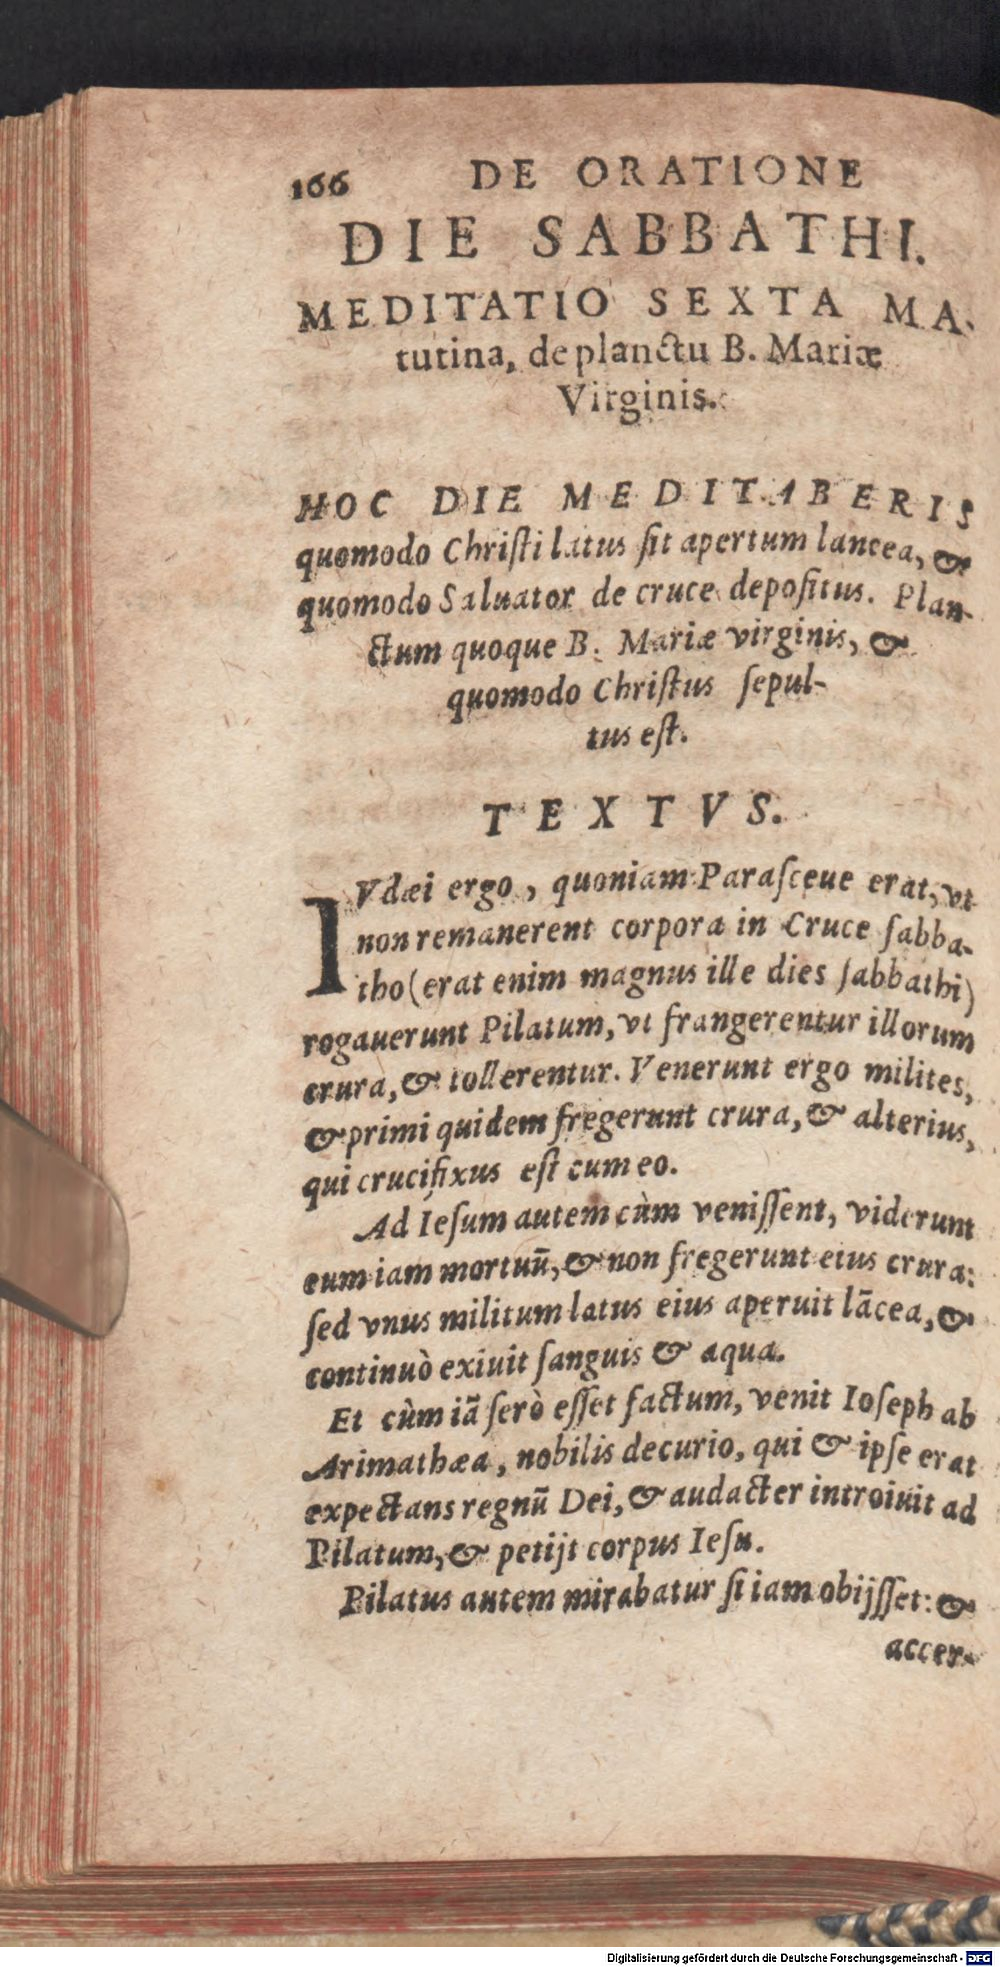 166 DE ORATIONE
DIE SABBATHI.
MEDITATIO SEXTA MA-
tutina, de planctu B. Mariæ
Virginis.
HOC DIE MEDITABERIS
quomodo Christi latus sit apertum lancea, &
quomodo Saluator de cruce depositus. Plan-
ctum quoque B. Mariæ virginis, &
quomodo Christus sepul-
tus est.
TEXTVS.
IVdæi ergo, quoniam Parasceue erat, vt
non remanerent corpora in Cruce sabba-
tho (erat enim magnus ille dies sabbathi)
rogauerunt Pilatum, vt frangerentur illorum
crura, & tollerentur. Venerunt ergo milites,
& primi quidem fregerunt crura, & alterius,
qui crucifixus est cum eo.
Ad Iesum autem cùm venissent, viderunt
eum iam mortuū, & non fregerunt eius crura:
sed vnus militum latus eius aperuit lācea, &
continuò exiuit sanguis & aqua.
Et cùm iā serò esset factum, venit Ioseph ab
Arimathæa, nobilis decurio, qui & ipse erat
expectans regnū Dei, & audacter introiuit ad
Pilatum, & petijt corpus Iesu.
Pilatus autem mirabatur si iam obijsset: &
accer-
Digitalisierung gefördert durch die Deutsche Forschungsgemeinschaft - DFG